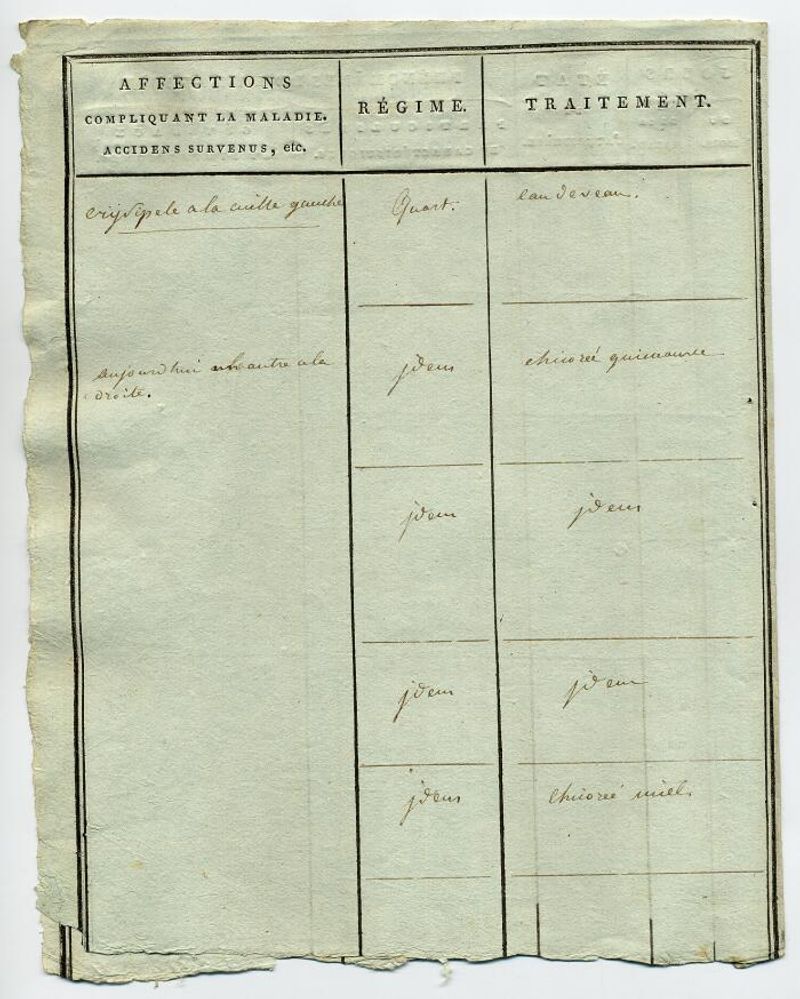 AFFECTIONS
COMPLIQUANT LA MALADIE.
ACCIDENS SURVENUS, etc.
RÉGIME.
TRAITEMENT.
erysipele a la cuisse gauche
Quart.
eau de veau.
aujourdhui un autre a la
droite.
jdem
chicoreé guimauve
jdem
jdem
jdem
jdem
jdem
chicoreé miel.